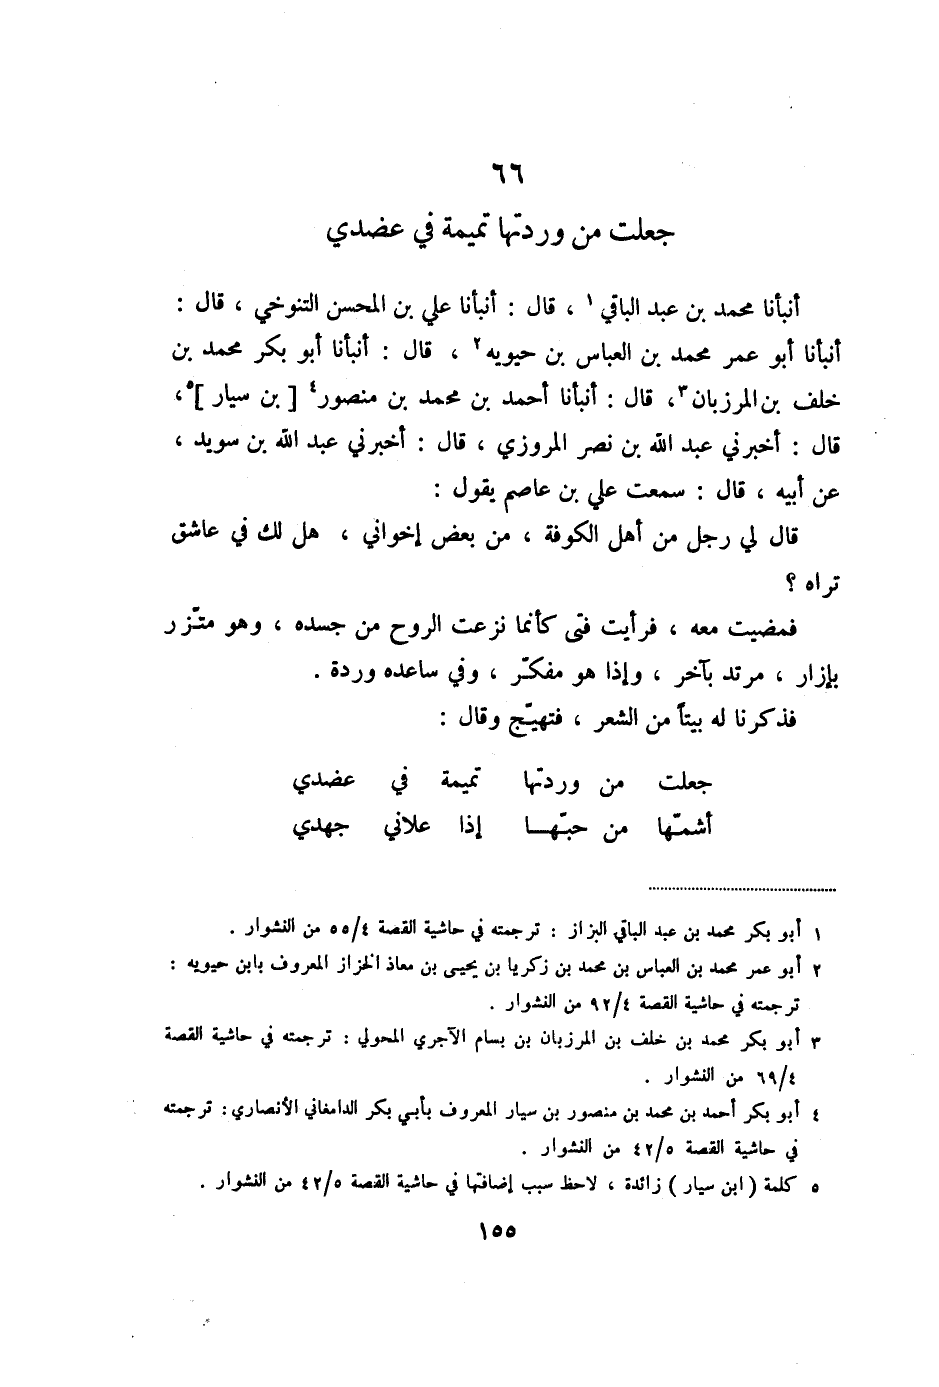 ٦٦
جعلت من وردتها تميمة في عضدي
أنبأنا محمد بن عبد الباقي١ ، قال : أنبأنا علي بن المحسن التنوخي ، قال :
أنبأنا أبو عمر محمد بن العباس بن حيويه٢ ، قال : أنبأنا أبو بكر محمد بن
خلف بن المرزبان٣، قال : أنبأنا أحمد بن محمد بن منصور٤ [ بن سيار ]٥،
قال : أخبرني عبد الله بن نصر المروزي ، قال : أخبرني عبد الله بن سويد ،
عن أبيه ، قال : سمعت علي بن عاصم يقول :
قال لي رجل من أهل الكوفة ، من بعض إخواني ، هل لك في عاشق
تراه ؟
فمضيت معه ، فرأيت فتى كأنما نزعت الروح من جسده ، وهو متّزر
بإزار ، مرتد بآخر ، وإذا هو مفكّر ، وفي ساعده وردة .
فذكرنا له بيتاً من الشعر ، فتهيّج وقال :
جعلت من وردتها تميمة في عضدي
أشمّها من حبّهـا إذا علاني جهدي
١ أبو بكر محمد بن عبد الباقي البزاز : ترجمته في حاشية القصة ٥٥/٤ من النشوار .
٢ أبو عمر محمد بن العباس بن محمد بن زكريا بن يحيى بن معاذ الخزاز المعروف بابن حيويه :
ترجمته في حاشية القصة ٩٢/٤ من النشوار .
٣ أبو بكر محمد بن خلف بن المرزبان بن بسام الآجري المحولي : ترجمته في حاشية القصة
٦٩/٤ من النشوار .
٤ أبو بكر أحمد بن محمد بن منصور بن سيار المعروف بأبي بكر الدامغاني الأنصاري : ترجمته
في حاشية القصة ٤٢/٥ من النشوار .
٥ كلمة ( ابن سيار ) زائدة ، لاحظ سبب إضافتها في حاشية القصة ٤٢/٥ من النشوار .
١٥٥